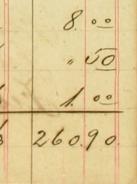 8.00
" 50
1.00
260.90